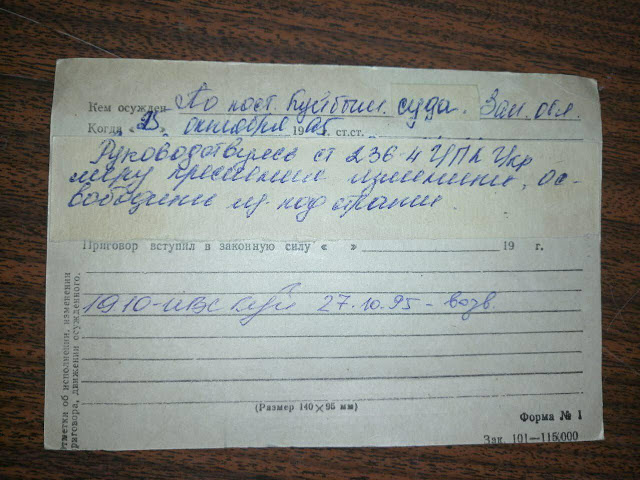 Кем осужден По пост. Куйбыш. суда. Зап. обл.
Когда « 25 » октября 19 95 г. ст.ст.
Руководствуясь ст 236-4 УПК Укр
меру пресечения изменить, ос-
вободить из под стражи
Приговор вступил в законную силу « » 19 г.
19.10-ИВС Куй 27.10.95 - возв.
(Размер 140×95 мм)
Форма № 1
Зак. 101—115000
отметки об исполнении, изменении
приговора, движении осужденного.